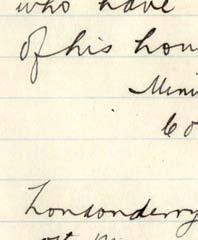 who have
of his hou
Mini
Co
Lonsonderry